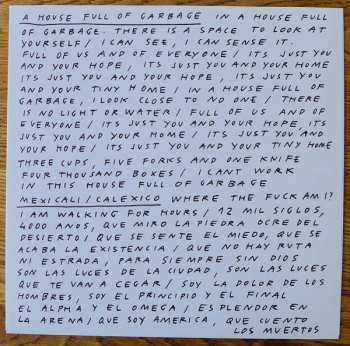 A HOUSE FULL OF GARBAGE IN A HOUSE FULL
OF GARBAGE. THERE IS A SPACE TO LOOK AT
YOURSELF / I CAN SEE, I CAN SENSE IT.
FULL OF US AND OF EVERYONE / ITS JUST YOU
AND YOUR HOPE, ITS JUST YOU AND YOUR HOME
ITS JUST YOU AND YOUR HOPE, ITS JUST YOU
AND YOUR TINY HOME / IN A HOUSE FULL OF
GARBAGE, I LOOK CLOSE TO NO ONE / THERE
IS NO LIGHT OR WATER / FULL OF US AND OF
EVERYONE / ITS JUST YOU AND YOUR HOPE ITS
JUST YOU AND YOUR HOME / ITS JUST YOU AND
YOUR HOPE / ITS JUST YOU AND YOUR TINY HOME
THREE CUPS, FIVE FORKS AND ONE KNIFE
FOUR THOUSAND BOXES / I CANT WORK
IN THIS HOUSE FULL OF GARBAGE
MEXICALI / CALEXICO WHERE THE FUCK AM I?
I AM WALKING FOR HOURS / 12 MIL SIGLOS,
4000 AÑOS, QUE MIRO LA PIEDRA OCRE DEL
DESIERTO / QUE SE SIENTE EL MIEDO, QUE SE
ACABA LA EXISTENCIA / QUE NO HAY RUTA
NI ESTRADA, PARA SIEMPRE SIN DIOS
SON LAS LUCES DE LA CIUDAD, SON LAS LUCES
QUE TE VAN A CEGAR / SOY LA DOLOR DE LOS
HOMBRES, SOY EL PRINCIPIO Y EL FINAL
EL ALPHA Y EL OMEGA / ESPLENDOR EN
LA ARENA / QUE SOY AMERICA, QUE CUENTO
LOS MUERTOS